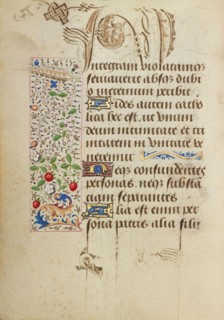 seruauerit absq dubi
o in eternum peribit
Fides autem catho
lica hec est ut unum
deum in trinitate et tri
nitatem in unitate ve
neremur
Neq confundentes
personas neq substā
ciam separantes
Alia est enim per
sona patris alia filij